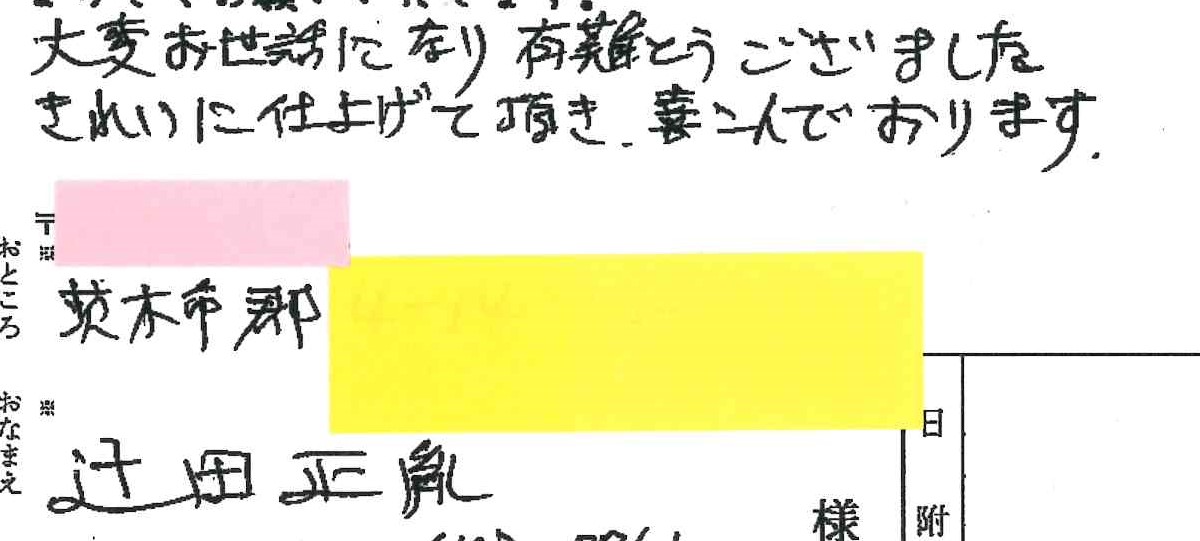 大変お世話になり有難とうございました
きれいに仕上げて頂き、喜こんでおります.
〒
おところ ※
茨木市郡
日附
おなまえ ※
辻田正胤
様